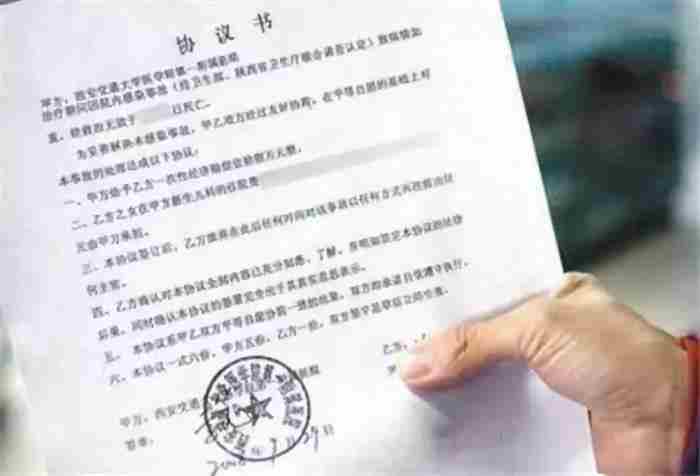 协议书
甲方：西安交通大学医学院第一附属医院
治疗期间因院内感染事故（经卫生部、陕西省卫生厅联合调查认定）致病情加
重，经救治无效于 日死亡。
为妥善解决本感染事故，甲乙双方经过友好协商，在平等自愿的基础上对
本事故的处理达成以下协议：
一、甲方给予乙方一次性经济赔偿 万元整。
二、乙方之女在甲方新生儿科的住院费
元由甲方承担。
三、本协议签订后，乙方 在此后任何时间对该事故以任何方式向
何主张。
四、乙方确认对本协议全部内容已充分知悉、了解，并明知签定本协议的法律
后果，同时确认本协议的签署完全出于其真实意思表示。
五、本协议系甲乙双方平等自愿协商一致的结果，双方均承诺自觉遵守执行。
六、本协议一式六份，甲方五份，乙方一份，双方签字盖章后立即生效。
甲方：西安交通 乙方：
签章：
2008年9月29日